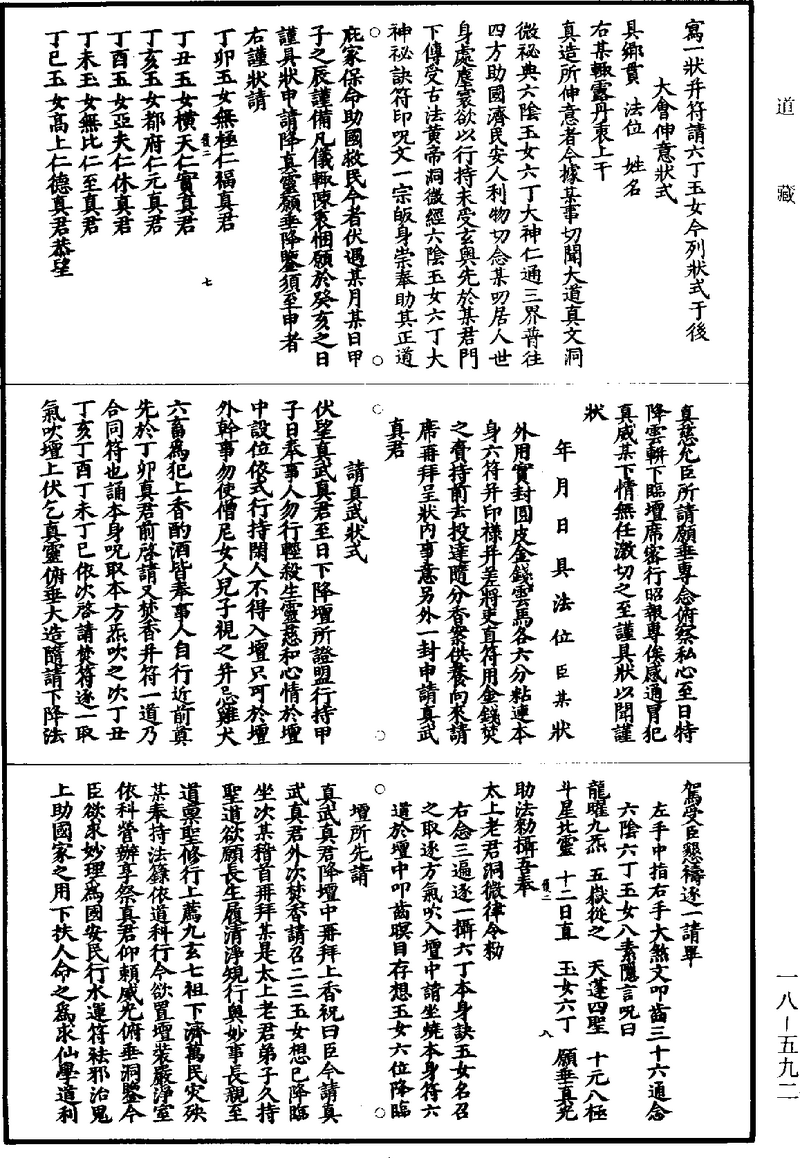 道藏
寫一狀并符請六丁玉女今列狀式于後
大會伸意狀式
具鄉貫 法位 姓名
右某輒露丹衷上干
真造所伸意者今據某事切聞大道真文洞
微祕典六陰玉女六丁大神仁通三界普往
四方助國濟民安人利物切念某叨居人世
身處塵寰欲以行持未受玄奧先於某君門
下傳受古法黃帝洞微經六陰玉女六丁大
神祕訣符印呪文一宗皈身崇奉助其正道
庇家保命助國救民今者伏遇某月某日甲
子之辰謹備凡儀輒陳衷悃願於癸亥之日
謹具狀申請降真靈願垂降鑒須至申者
右謹狀請
丁卯玉女無極仁福真君
丁丑玉女橫天仁實真君
丁亥玉女都府仁元真君
丁酉玉女亞夫仁休真君
丁未玉女無比仁至真君
丁巳玉女高上仁德真君恭望
真慈允臣所請願垂專念俯察私心至日特
降雲軿下臨壇席密行昭報專俟感通冒犯
真威某下情無任激切之至謹具狀以聞謹
狀
年 月 日 具 法 位 臣 某 狀
外用實封圓皮金錢雲馬各六分粘連本
身六符并印樣并差將吏直符用金錢焚
之賷持前去投達隨分香案供養向來請
席再拜呈狀內事意另外一封申請真武
真君
請真武狀式
伏望真武真君至日下降壇所證盟行持甲
子日奉事人勿行輕殺生靈慈和心情於壇
中設位依式行持閑人不得入壇只可於壇
外幹事勿使僧尼女人兒子視之并忌雞犬
六畜為犯上香酌酒皆奉事人自行近前奠
先於丁卯真君前啓請又焚香并符一道乃
合同符也誦本身呪取本方炁吹之次丁丑
丁亥丁酉丁未丁巳依次啓請焚符逐一取
氣吹壇上伏乞真靈俯垂大造隨請下降法
駕受臣懇禱逐一請畢
左手中指右手大煞文叩齒三十六通念
六陰六丁玉女八素隱言呪曰
龍曜九炁 五嶽從之 天蓬四聖 十元八極
斗星北靈 十二日直 玉女六丁 願垂真光
助法勑攝吾奉
太上老君洞微律令勑
右念三遍逐一搯六丁本身訣玉女名召
之取逐方氣吹入壇中請坐燒本身符六
道於壇中叩齒瞑目存想玉女六位降臨
壇所先請
真武真君降壇中再拜上香祝曰臣今請真
武真君外次焚香請召二三玉女想已降臨
坐次某稽首再拜某是太上老君弟子久持
聖道欲願長生履清淨規行與妙事長親至
道稟聖修行上薦九玄七祖下濟萬民灾殃
某奉持法籙依道科行今欲置壇裝嚴淨室
依科營辦享祭真君仰賴威光俯垂洞鑒今
臣欲求妙理為國安民行水運符祛邪治鬼
上助國家之用下扶人命之為求仙學道利
一八-五九二